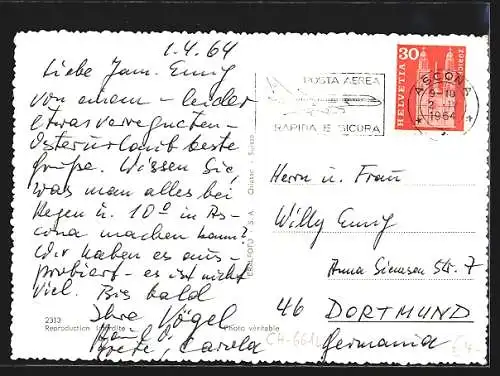 1.4.64
Liebe Fam. Emig
von einem - leider
etwas verregneten -
Osterurlaub beste
Grüße. Wissen Sie,
was man alles bei
Regen u. 10° in As-
cona machen kann?
Wir haben es aus-
probiert - es ist nicht
viel. Bis bald
Ihre Vögel
Grete, Carola
2313
Reproduction interdite
Photo véritable
S.A. Chiasso - Suisse
POSTA AEREA
RAPIDA E SICURA
30
HELVETIA
ASCONA
9-10
1964
Herrn u. Frau
Willy Emig
Anna Siemsen Str. 7
46 DORTMUND
Germania